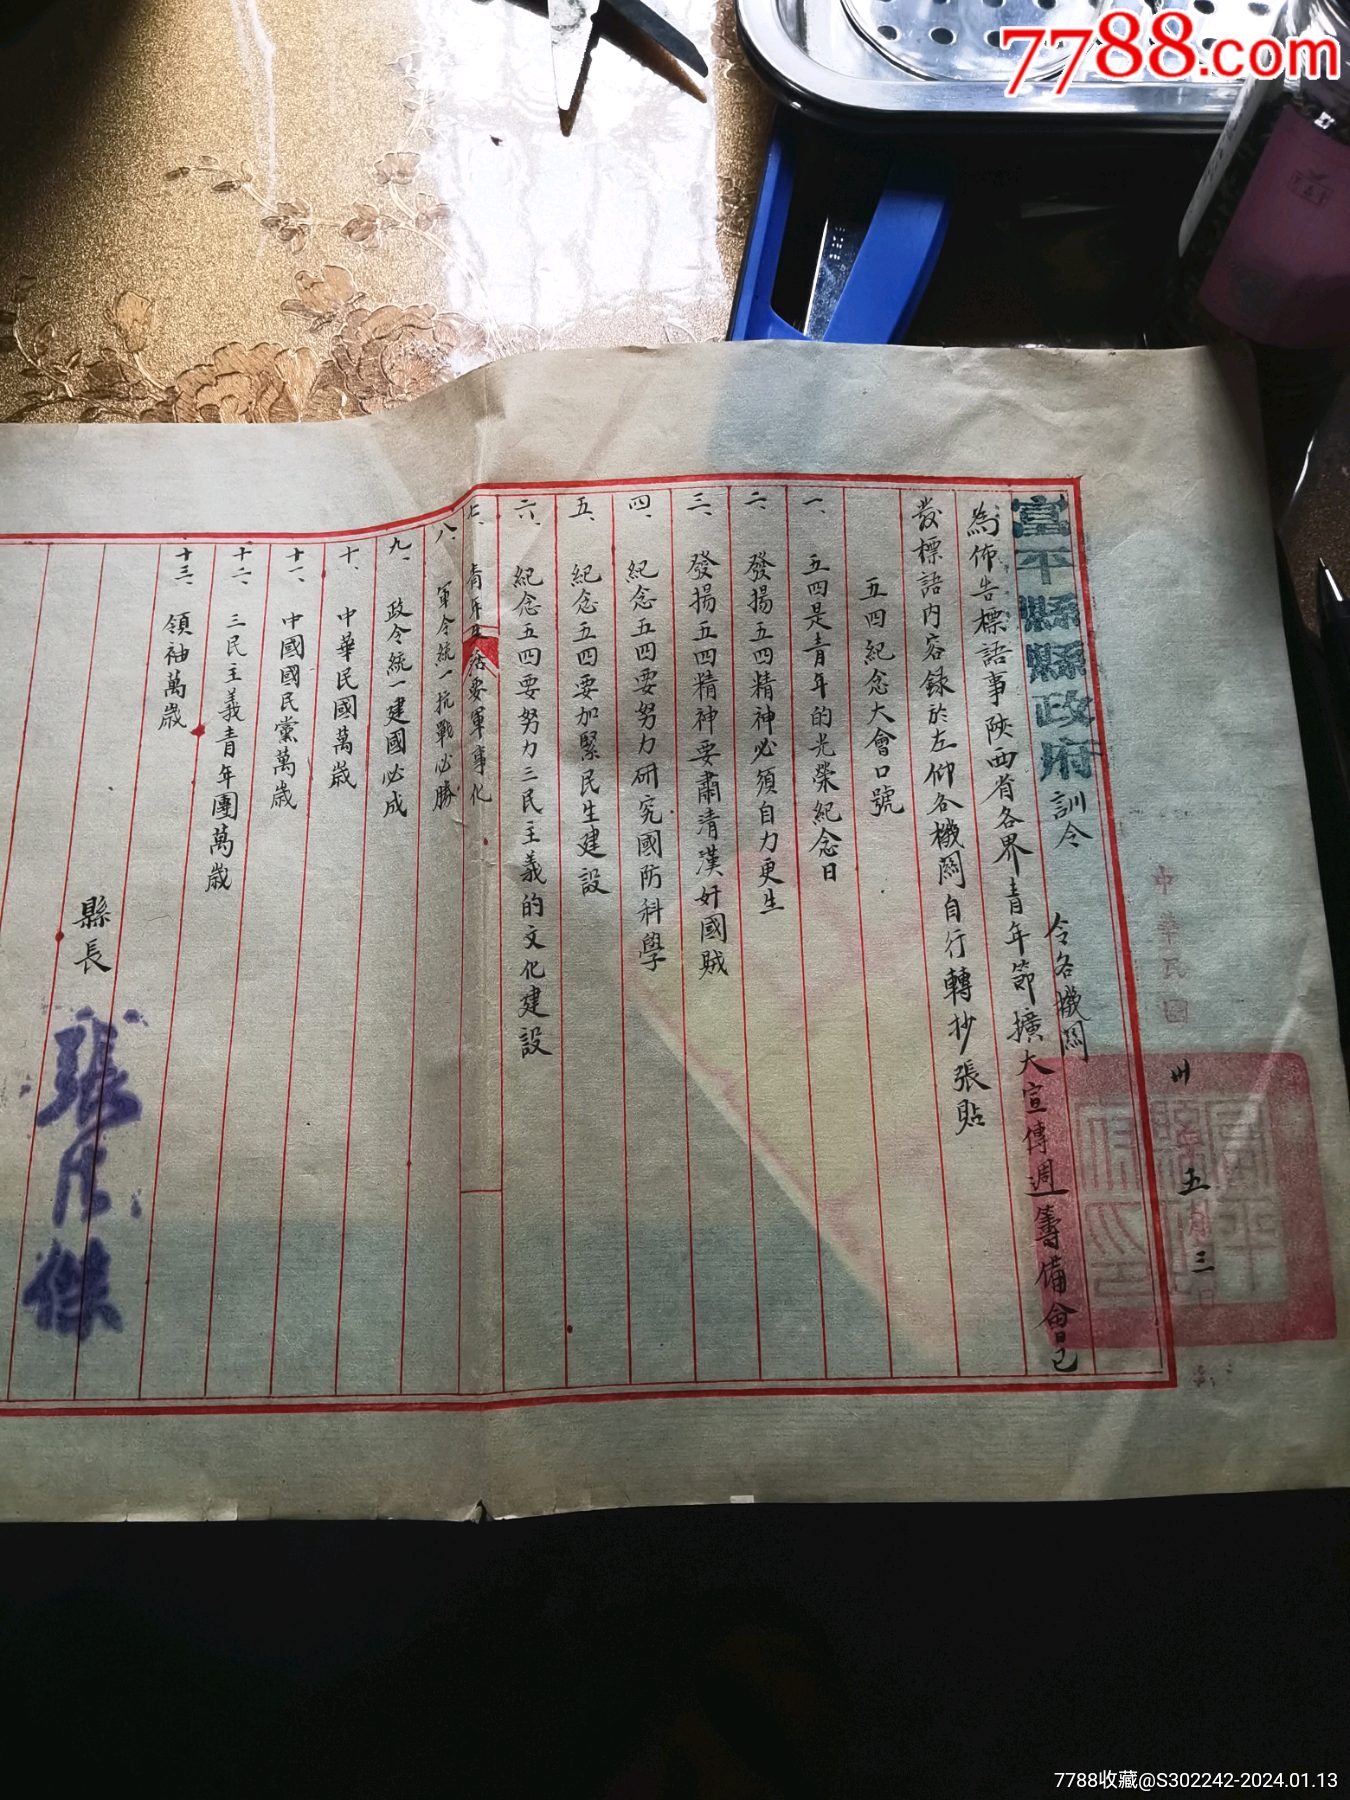 7788.com
中華民國
卅 五月三日
富平縣縣政府訓令 令各機關
為佈告標語事陝西省各界青年節擴大宣傳週籌備會已
發標語內容録於左仰各機關自行轉抄張貼
五四紀念大會口號
一、五四是青年的光榮紀念日
二、發揚五四精神必須自力更生
三、發揚五四精神要肅清漢奸國賊
四、紀念五四要努力研究國防科學
五、紀念五四要加緊民生建設
六、紀念五四要努力三民主義的文化建設
七、青年生活要軍事化
八、軍令統一抗戰必勝
九、政令統一建國必成
十、中華民國萬歲
十一、中國國民黨萬歲
十二、三民主義青年團萬歲
十三、領袖萬歲
縣長 張
7788收藏@S302242-2024.01.13